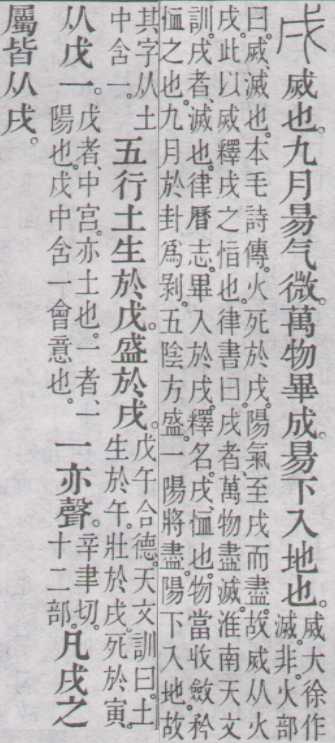 戌 烕也。九月昜气微。萬物畢成。昜下入地也。烕大徐作滅。非。火部
曰。烕、滅也。本毛詩傳。火死於戌。陽氣至戌而盡。故烕从火
戌。此以烕釋戌之恉也。律書曰。戌者、萬物盡滅。淮南天文
訓。戌者、滅也。律曆志。畢入於戌。釋名。戌、恤也。物當收斂矜
恤之也。九月於卦爲剝。五陰方盛。一陽將盡。陽下入地。故
其字从土中含一。五行土生於戊。盛於戌。戊午合德。天文訓曰。土生於午。壯於戌。死於寅。
从戊一。戊者、中宮。亦土也。一者、一陽也。戊中含一會意也。一亦聲。辛聿切。十二部。凡戌之
屬皆从戌。